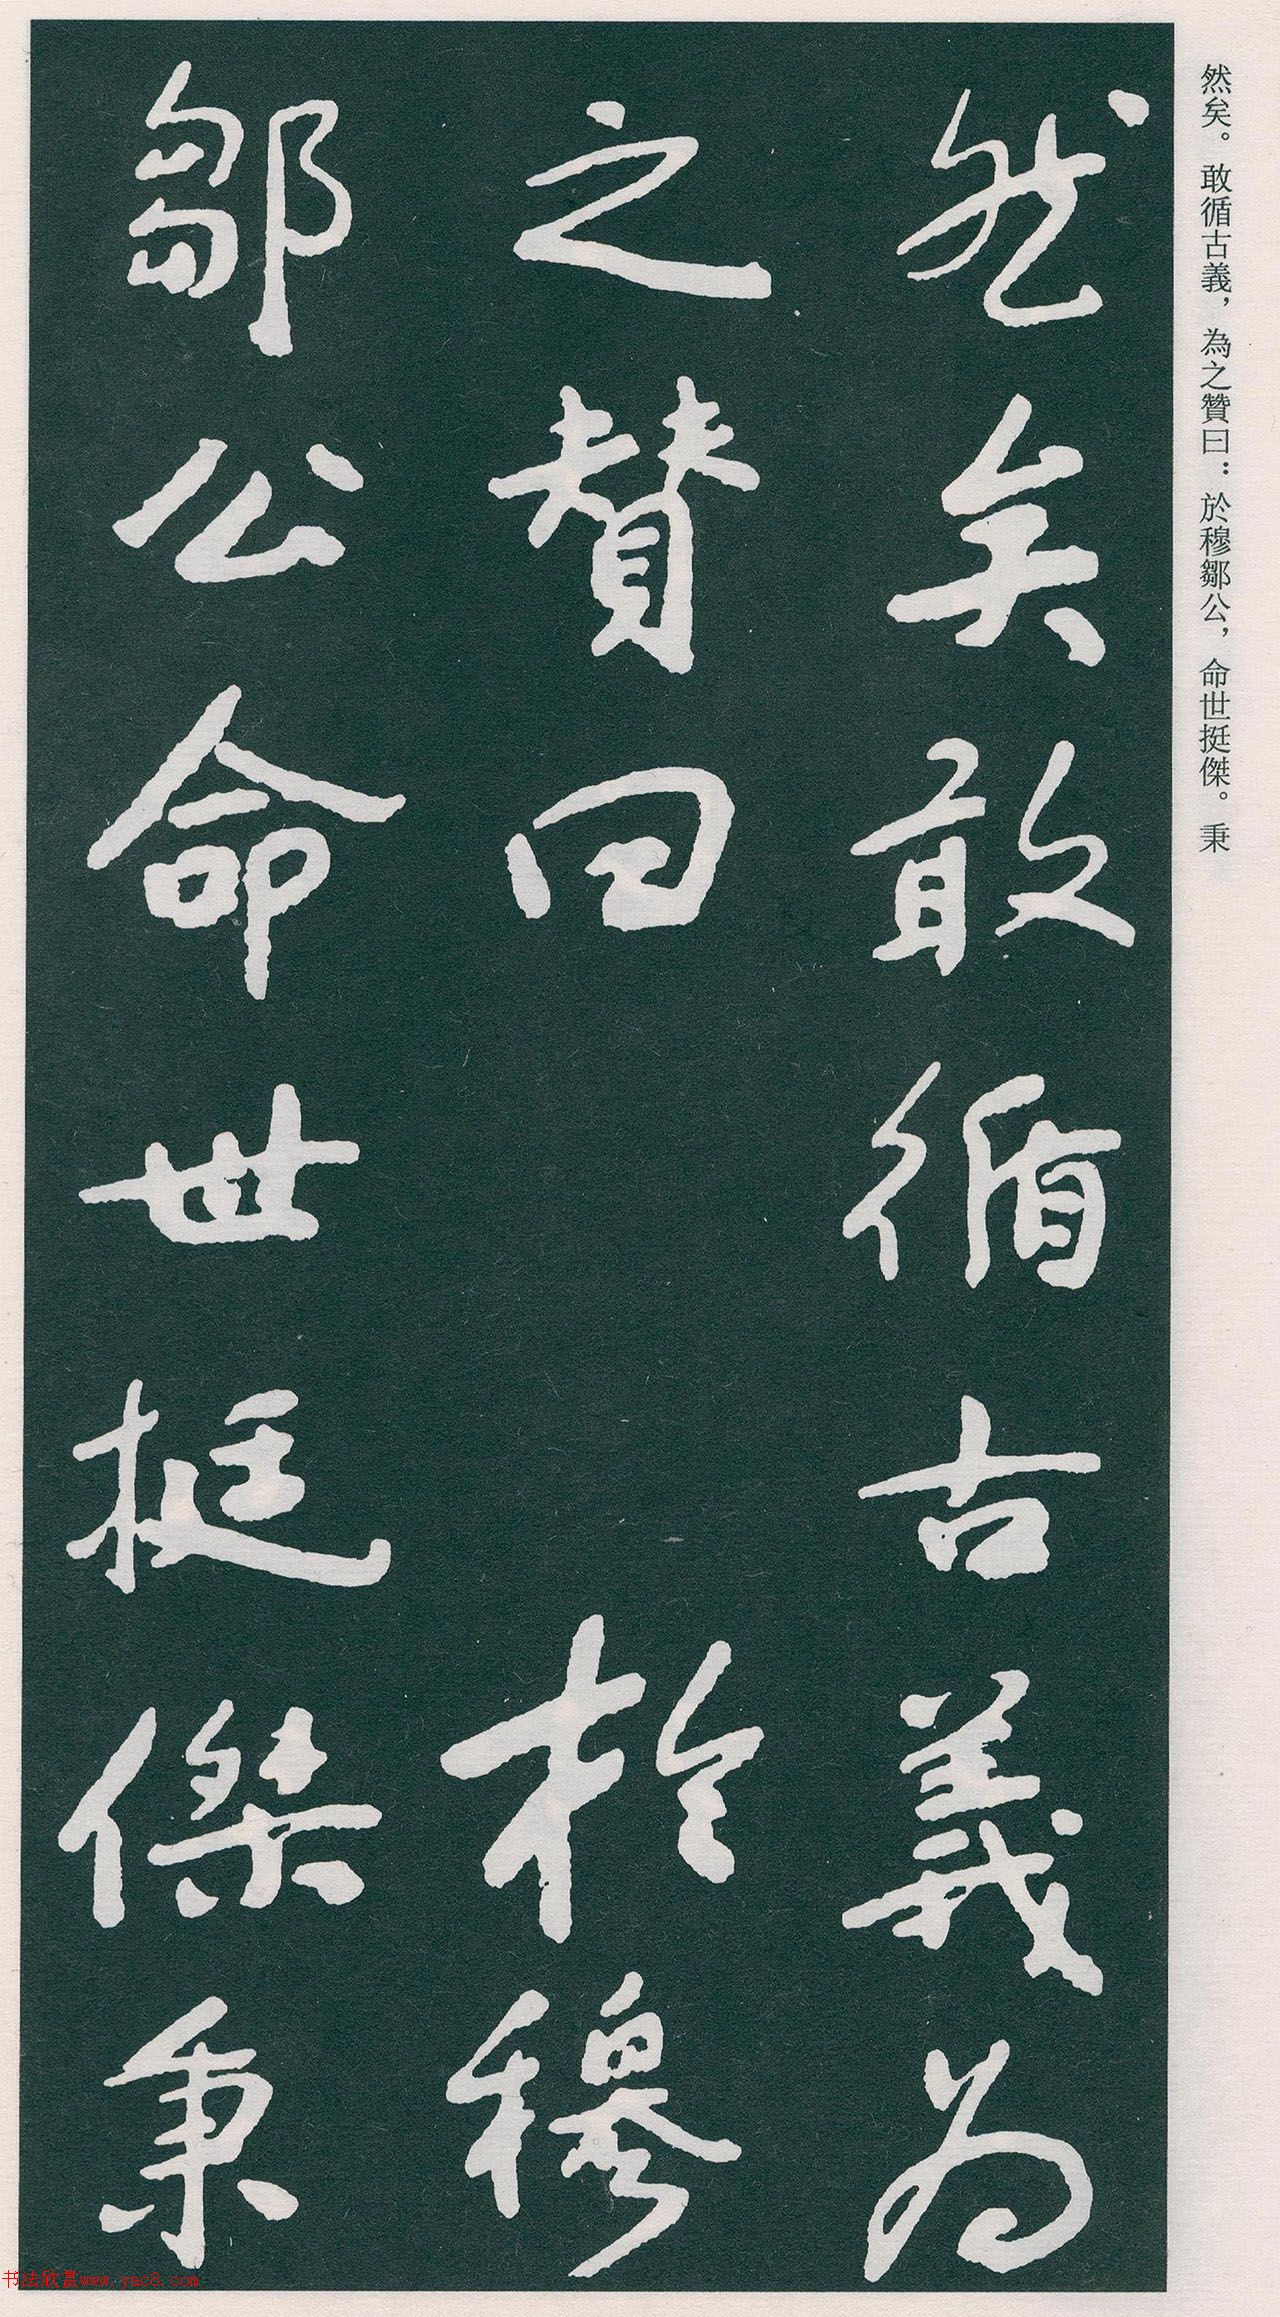 然矣。敢循古義，為之贊曰：於穆鄒公，命世挺傑。秉
然矣敢循古義為
之贊曰 於穆
鄒公命世挺傑秉
书法欣赏www.yac8.com